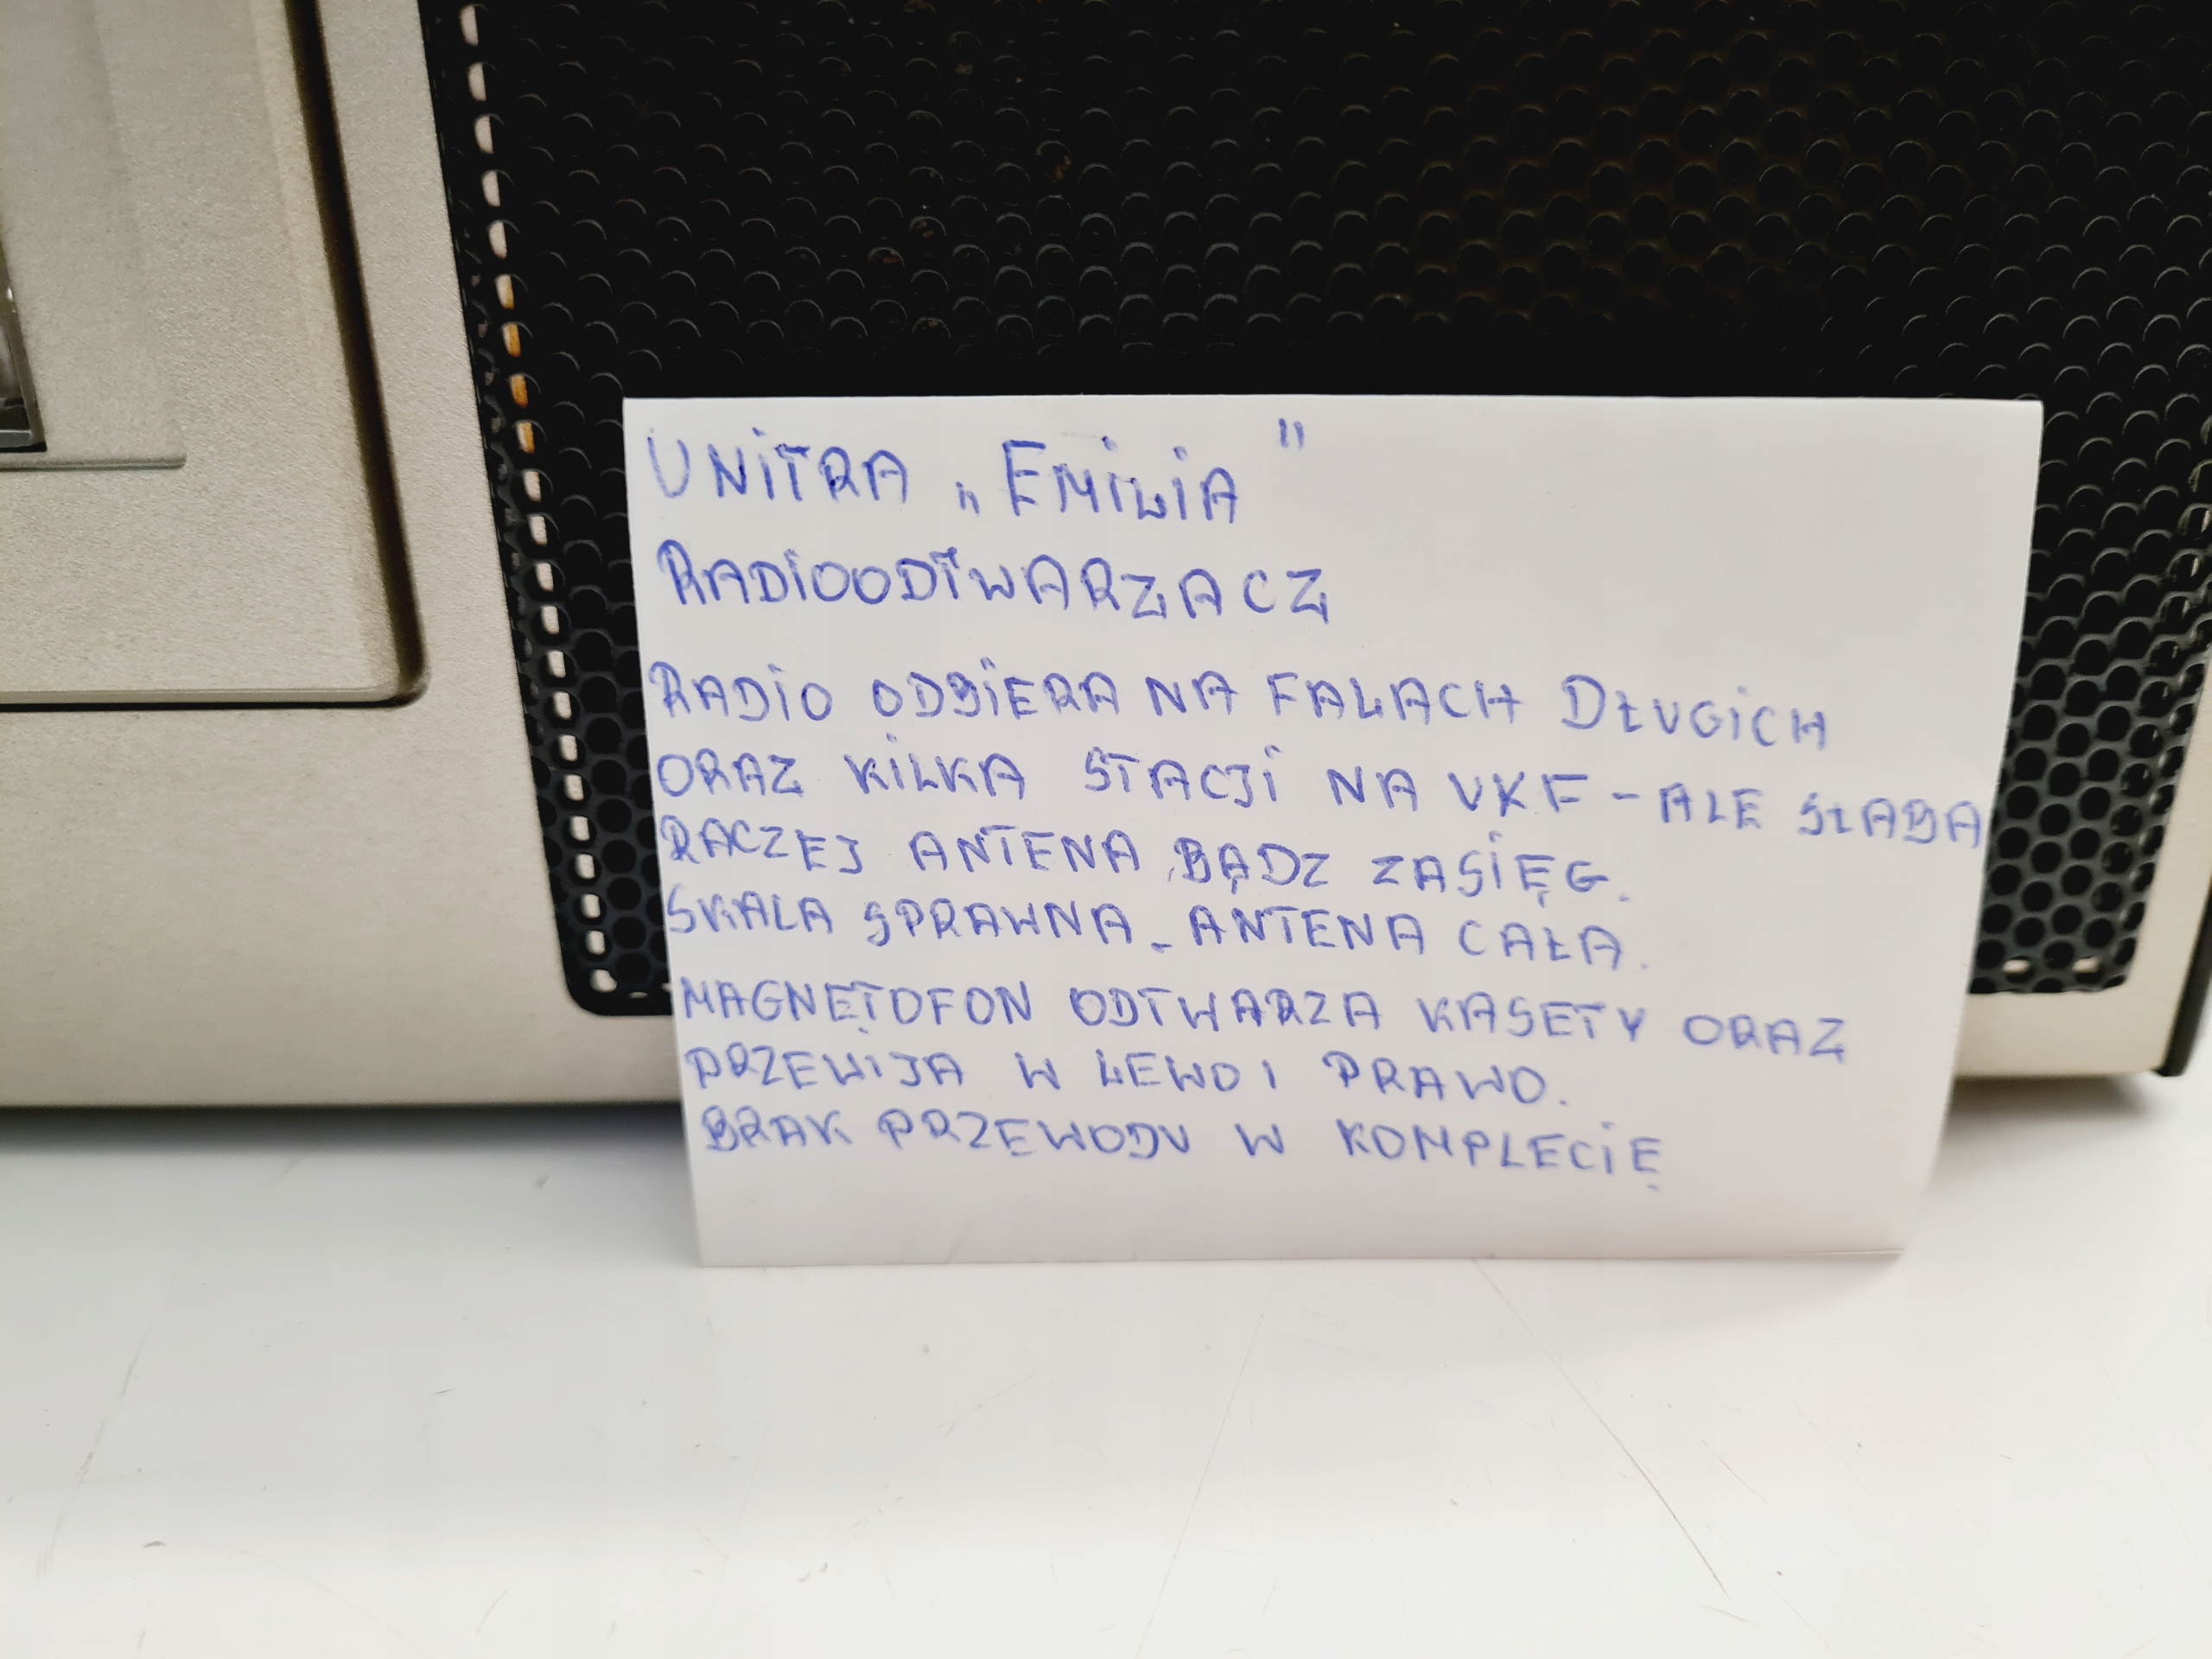 UNITRA „EMILIA"
RADIOODTWARZACZ
RADIO ODBIERA NA FALACH DŁUGICH
ORAZ KILKA STACJI NA UKF - ALE SŁABA
RACZEJ ANTENA BĄDZ ZASIĘG.
SKALA SPRAWNA - ANTENA CAŁA.
MAGNETOFON ODTWARZA KASETY ORAZ
PRZEWIJA W LEWO I PRAWO.
BRAK PRZEWODU W KOMPLECIE